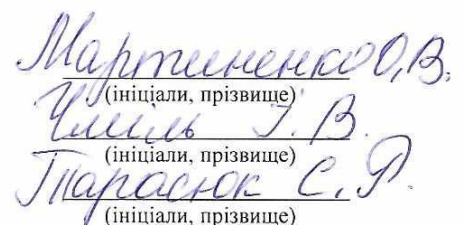 Мартиненко О.В.
(ініціали, прізвище)
Чміль І. В.
(ініціали, прізвище)
Тарасюк С. Р.
(ініціали, прізвище)